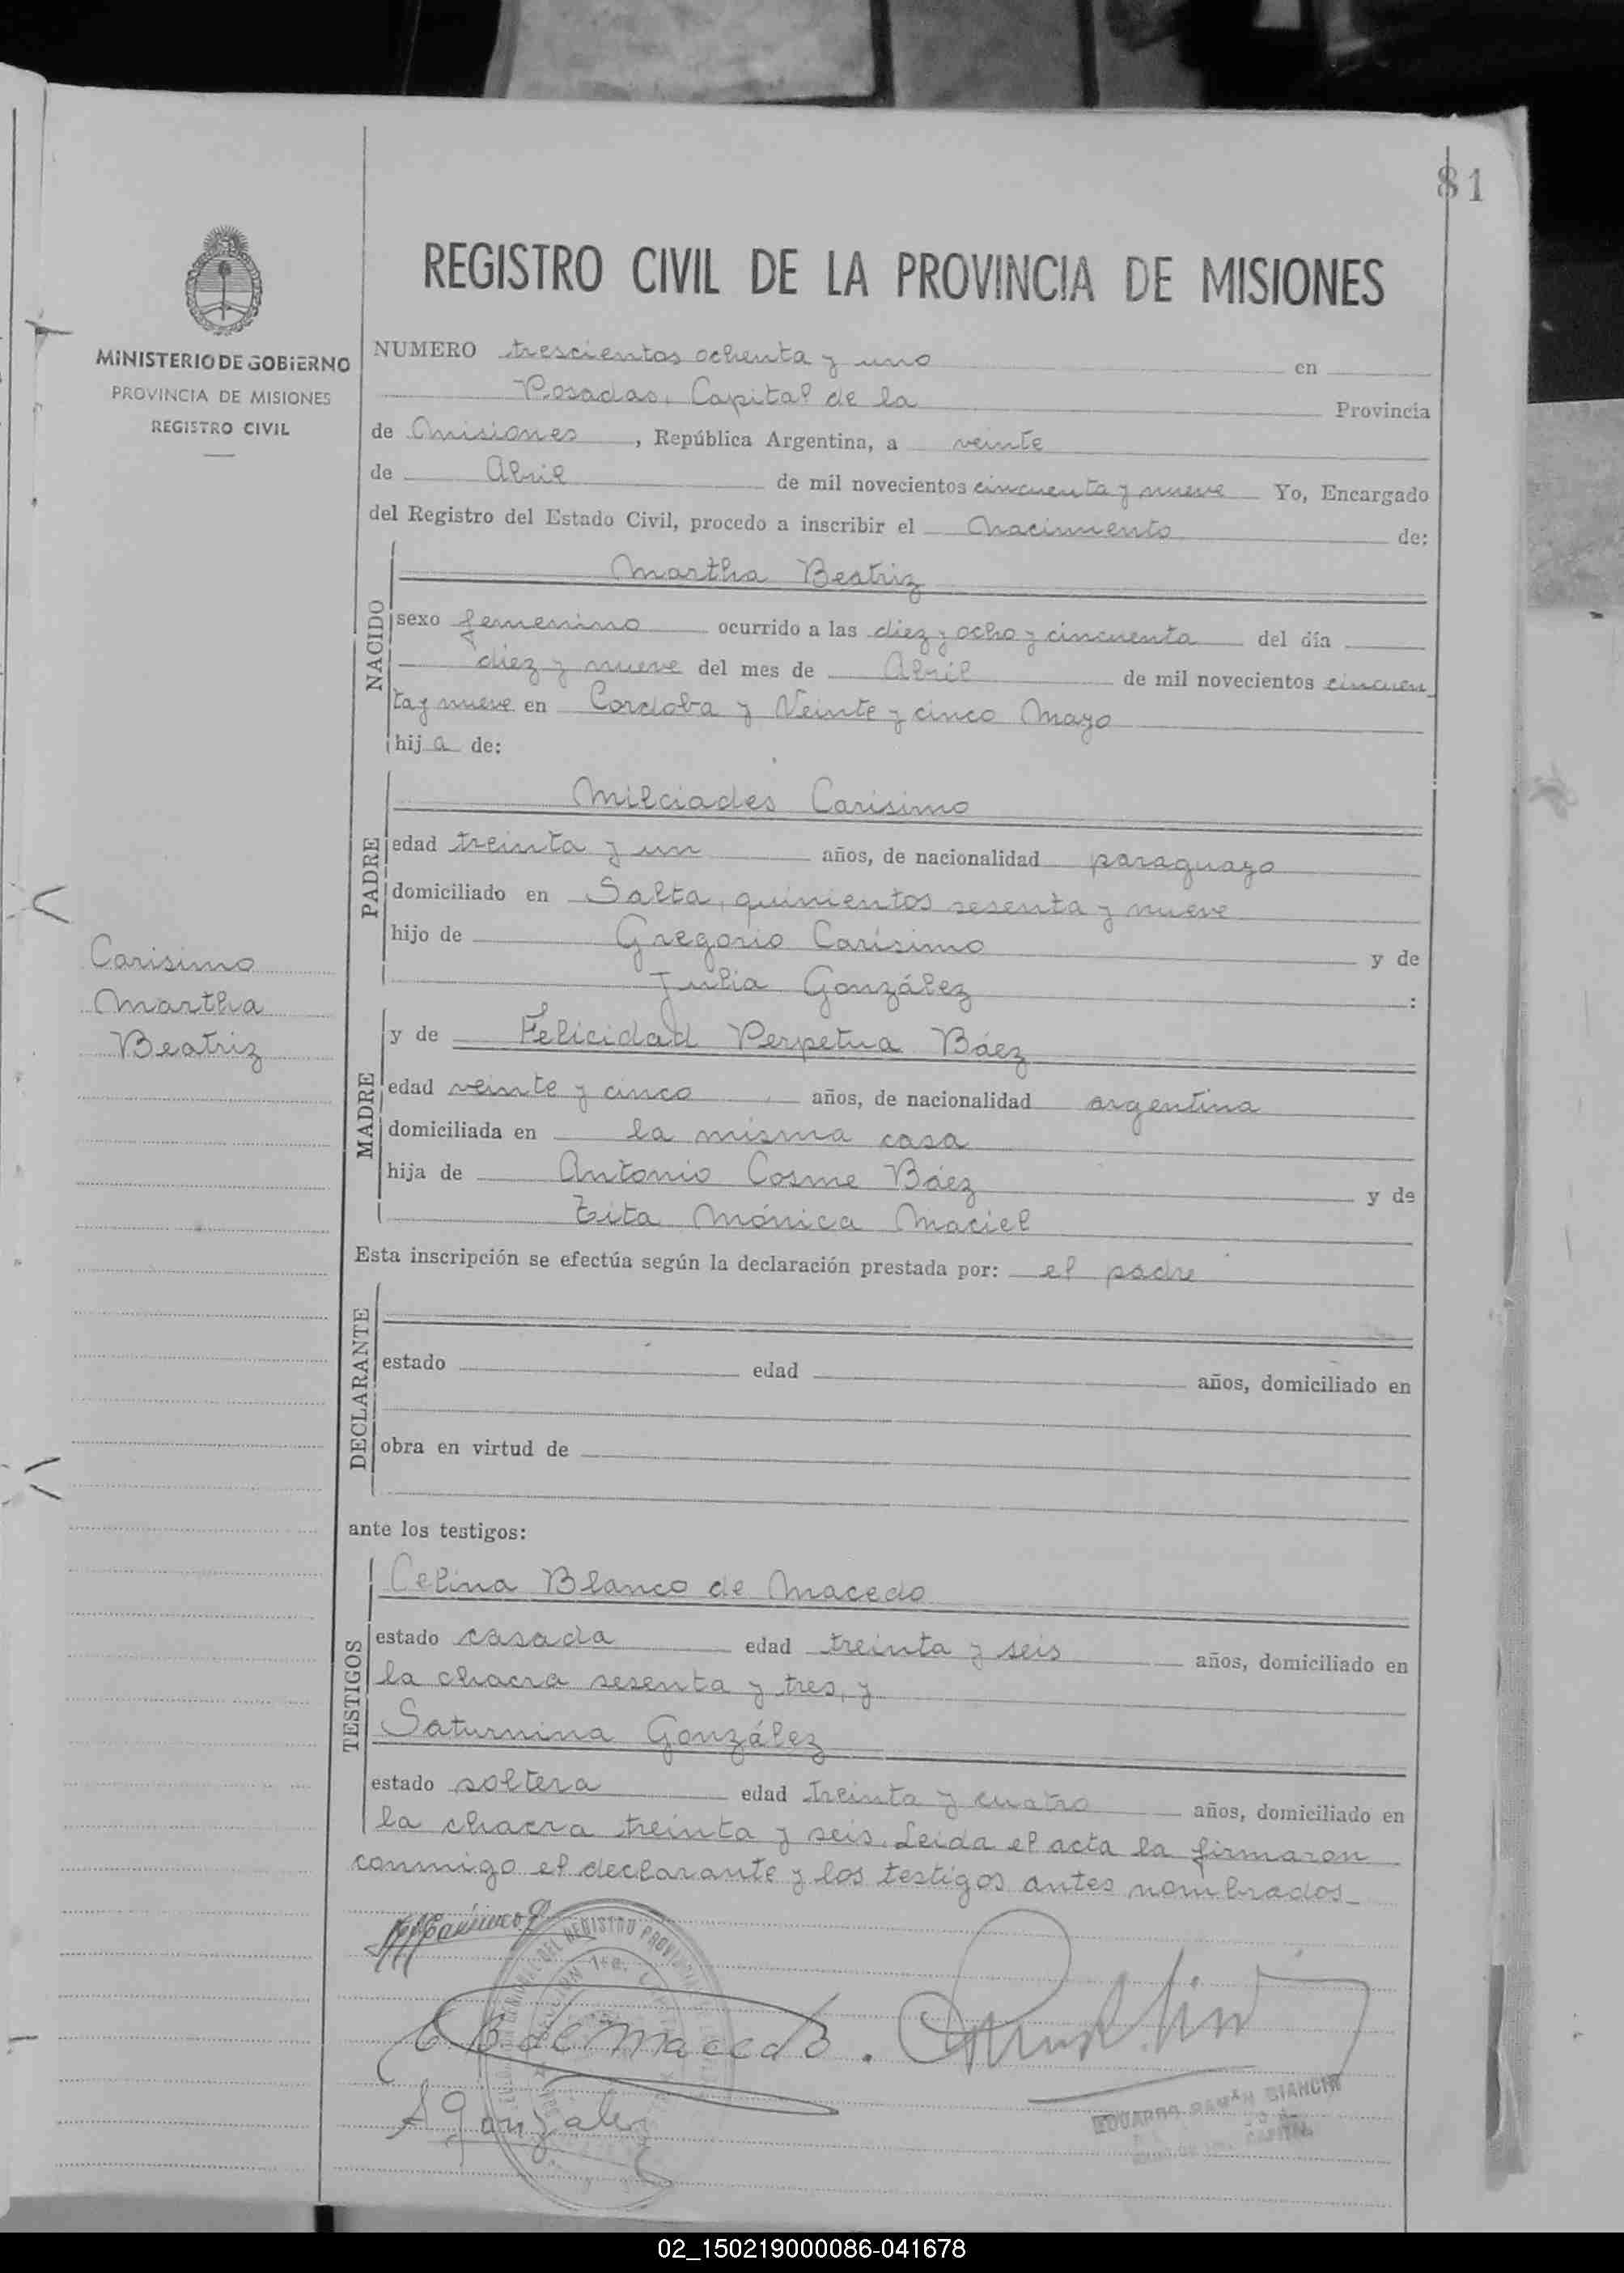 81
REGISTRO CIVIL DE LA PROVINCIA DE MISIONES
MINISTERIO DE GOBIERNO
PROVINCIA DE MISIONES
REGISTRO CIVIL
NUMERO trescientos ochenta y uno en
Posadas, Capital de la Provincia
de Misiones, República Argentina, a veinte
de Abril de mil novecientos cincuenta y nueve Yo, Encargado
del Registro del Estado Civil, procedo a inscribir el Nacimiento de:
NACIDO
Martha Beatriz
sexo femenino ocurrido a las diez y ocho y cincuenta del día
diez y nueve del mes de Abril de mil novecientos cincuen
ta y nueve en Cordoba y Veinte y cinco Mayo
hija de:
PADRE
Milciades Carisimo
edad treinta y un años, de nacionalidad paraguayo
domiciliado en Salta, quinientos sesenta y nueve
hijo de Gregorio Carisimo y de
Julia González :
Carisimo
Martha
Beatriz
MADRE
y de Felicidad Perpetua Báez
edad veinte y cinco años, de nacionalidad argentina
domiciliada en la misma casa
hija de Antonio Cosme Báez y de
Zita Mónica Maciel
Esta inscripción se efectúa según la declaración prestada por: el padre
DECLARANTE
estado edad años, domiciliado en
obra en virtud de
ante los testigos:
TESTIGOS
Celina Blanco de Macedo
estado casada edad treinta y seis años, domiciliado en
la chacra sesenta y tres, y
Saturnina González
estado soltera edad treinta y cuatro años, domiciliado en
la chacra treinta y seis. Leida el acta la firmaron
conmigo el declarante y los testigos antes nombrados
DEL REGISTRO PROVINCIAL
C B de Macedo.
S González
EDUARDO RAMÓN BIANCHI
CAPITAL
02_150219000086-041678